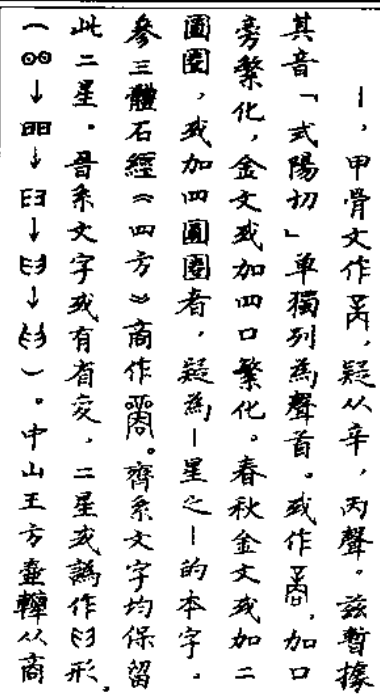 －，甲骨文作，疑从辛，丙聲。茲暫據
其音「式陽切」单獨列為聲首。或作，加口
旁繁化，金文或加四口繁化。春秋金文或加二
圓圈，或加四圓圈者，疑為－星之－的本字，
參三體石經《四方》商作。齊系文字均保留
此二星。晉系文字或有省变，二星或譌作形
（⊙⊙→→→→）。中山王方壺从商